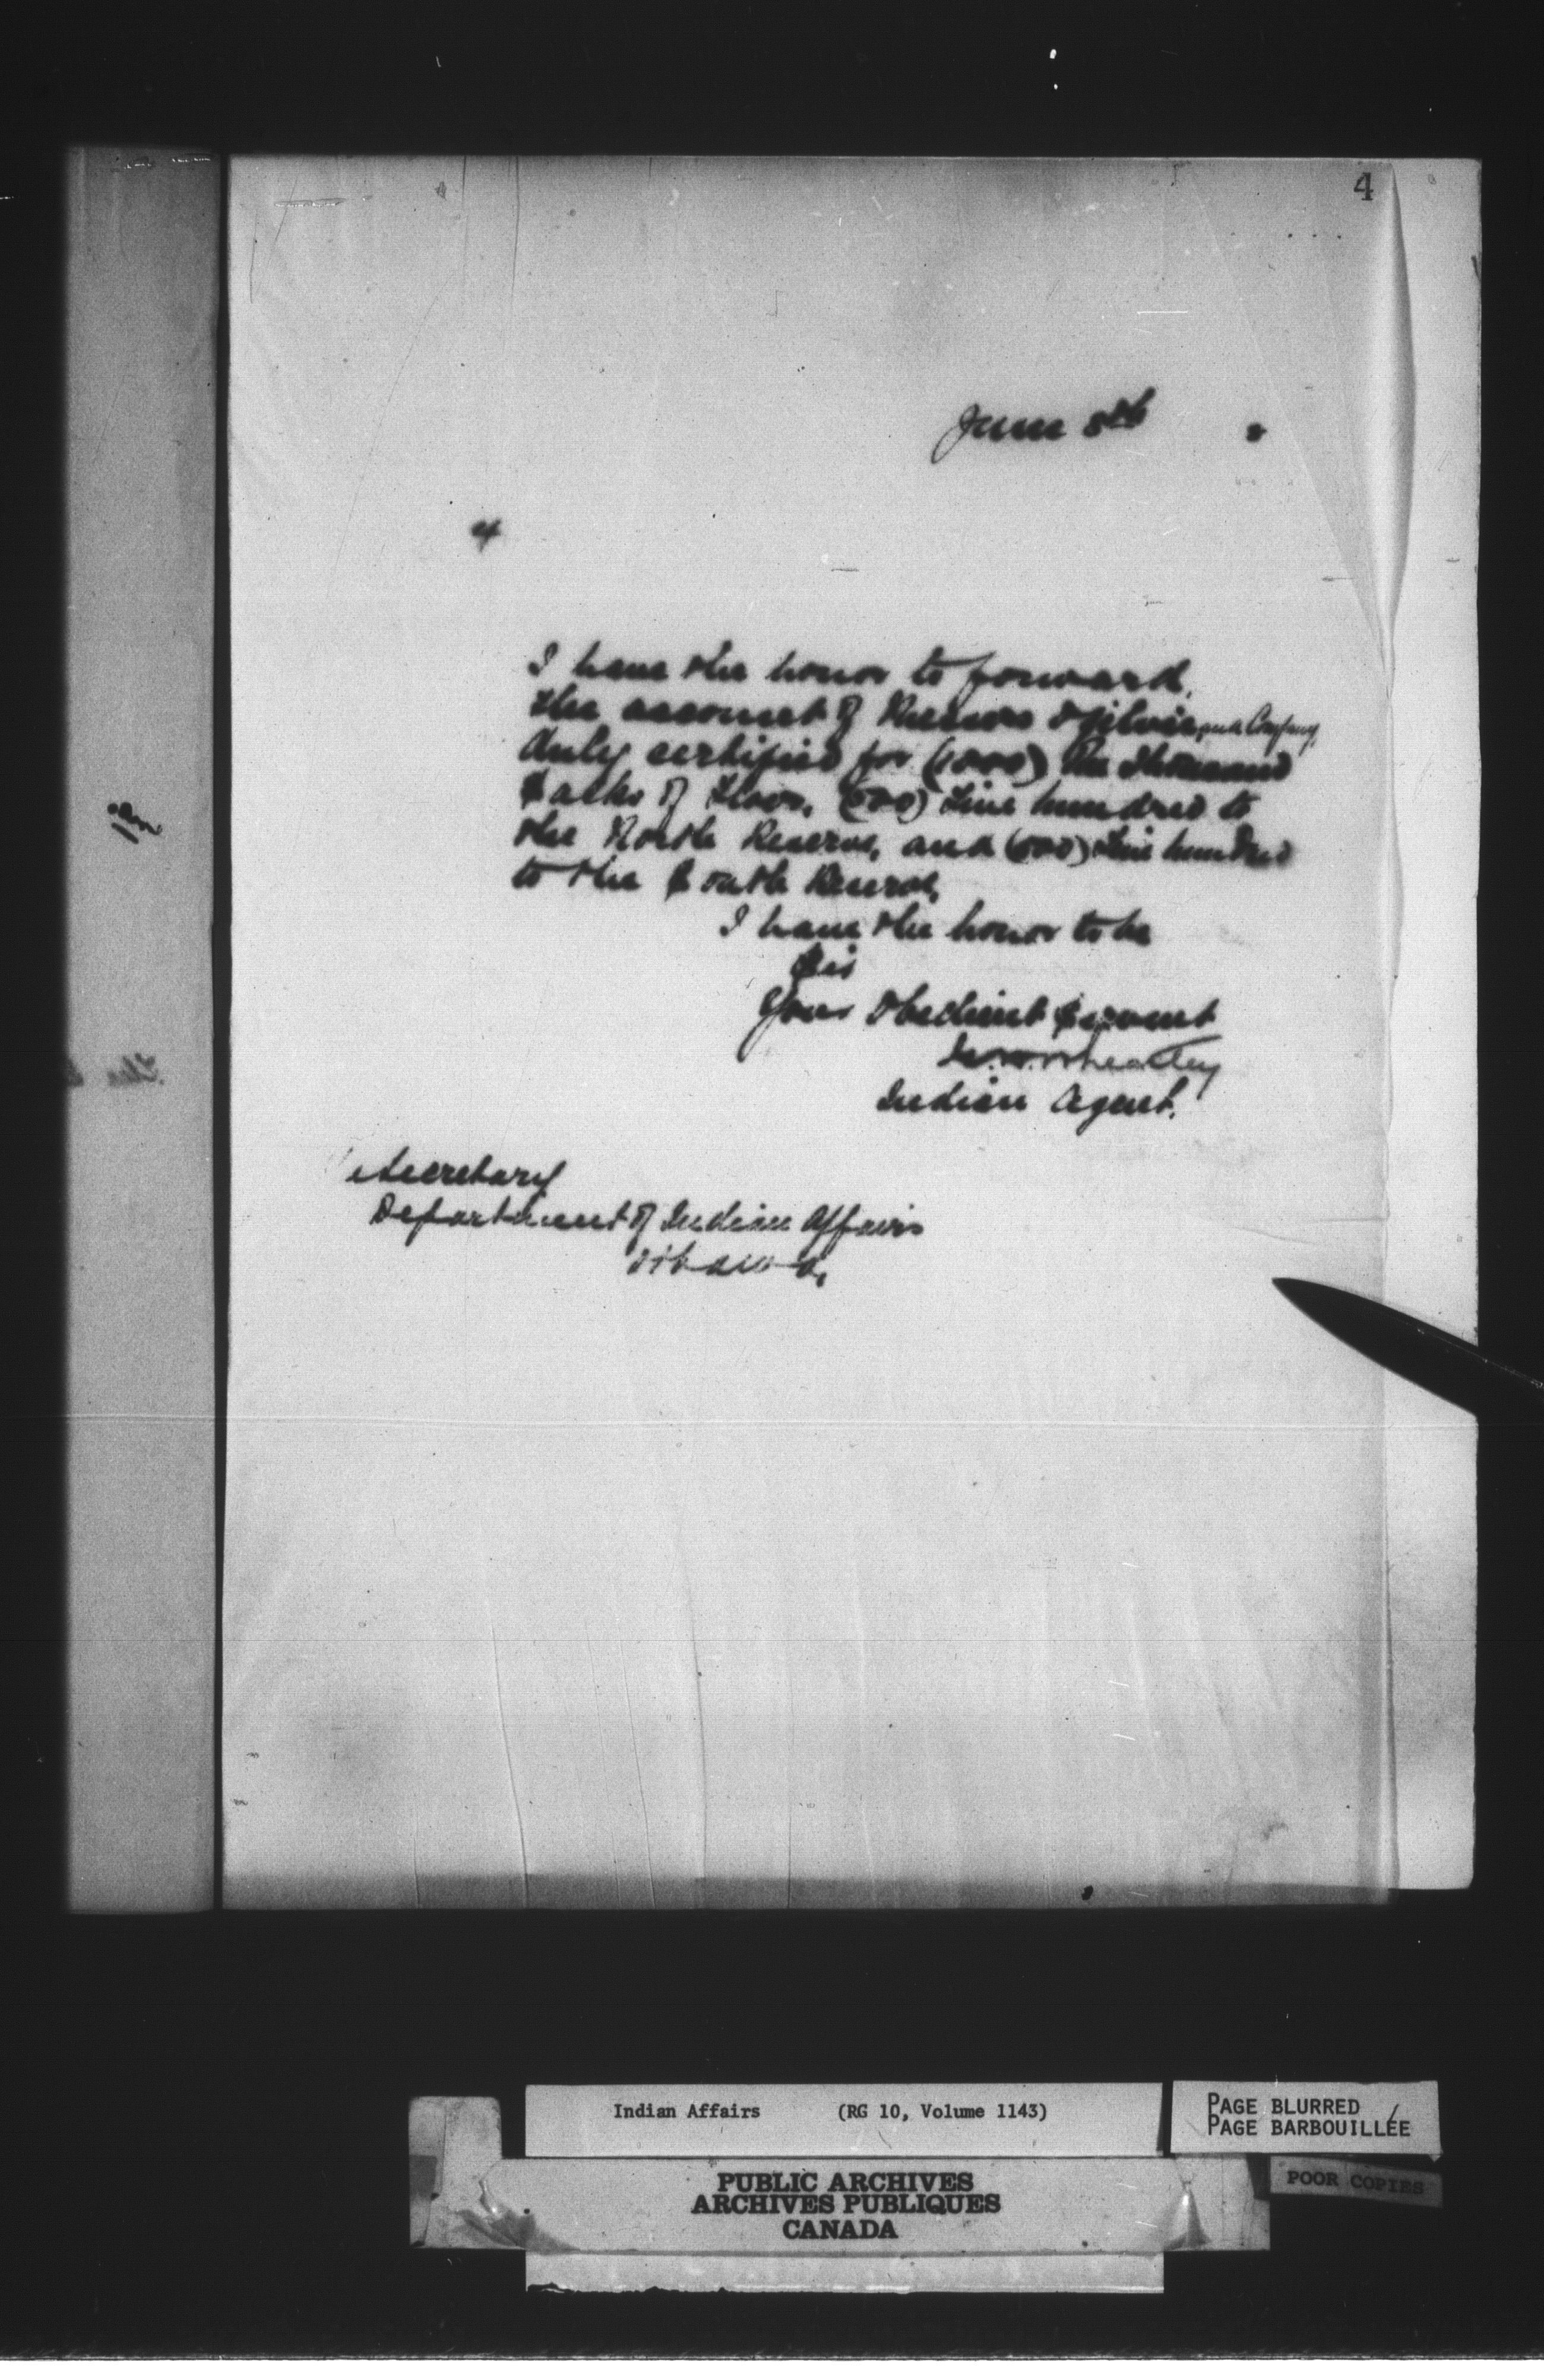 4
June 8th 8
4
I have the honor to forward,
the account of Messrs Ogilvie and Company,
duly certified for (1000) One thousand
Sacks of Flour, (500) Five hundred to
the North Reserve, and (500) Five hundred
to the South Reserve,
I have the honor to be
Sir
Your Obedient Servant
Wheatley
Indian Agent.
Secretary
Department of Indian Affairs
Ottawa,
Indian Affairs (RG 10, Volume 1143)
PAGE BLURRED
PAGE BARBOUILLÉE
PUBLIC ARCHIVES
ARCHIVES PUBLIQUES
CANADA
POOR COPIES